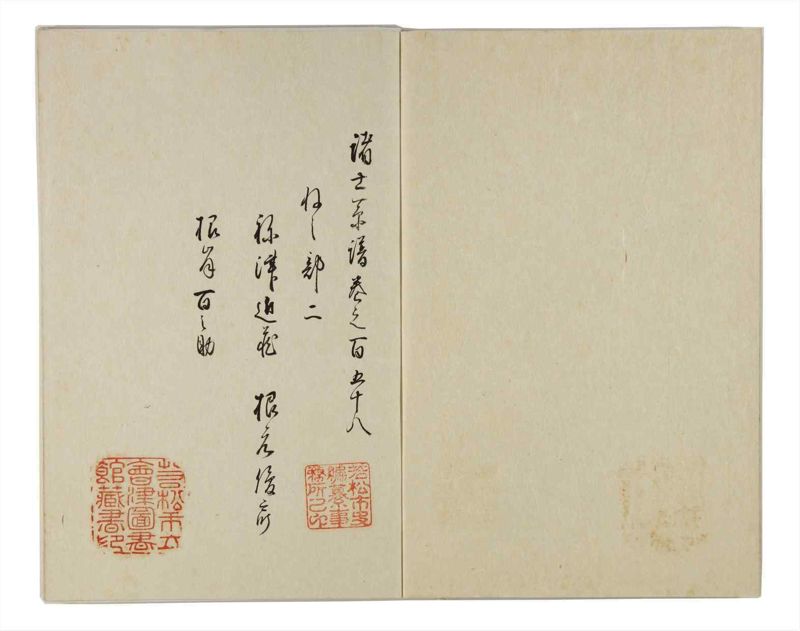 諸士系譜巻之百五十八
ね之部二
祢津 根
根岸百之助
若松市史
編纂事
務所之印
若松市立
會津圖書
館藏書印